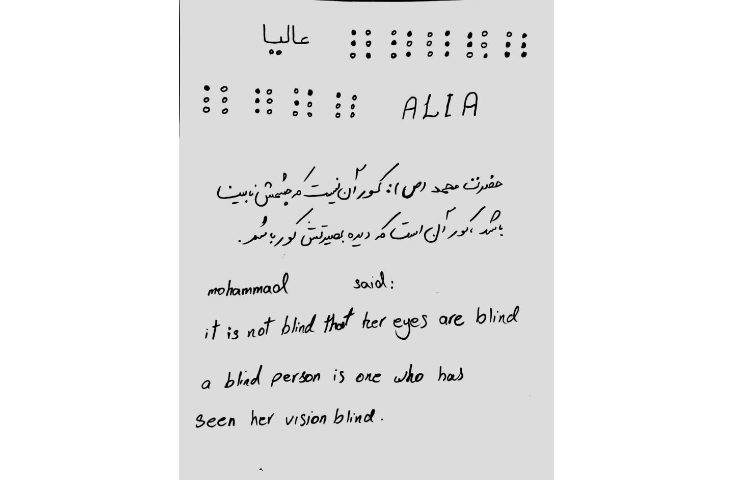 عالیا
ALIA
حضرت محمد (ص): کور آن نیست که چشمش نابینا
باشد، کور آن است که دیده بصیرتش کور باشد.
mohammad said:
it is not blind that her eyes are blind
a blind person is one who has
seen her vision blind.